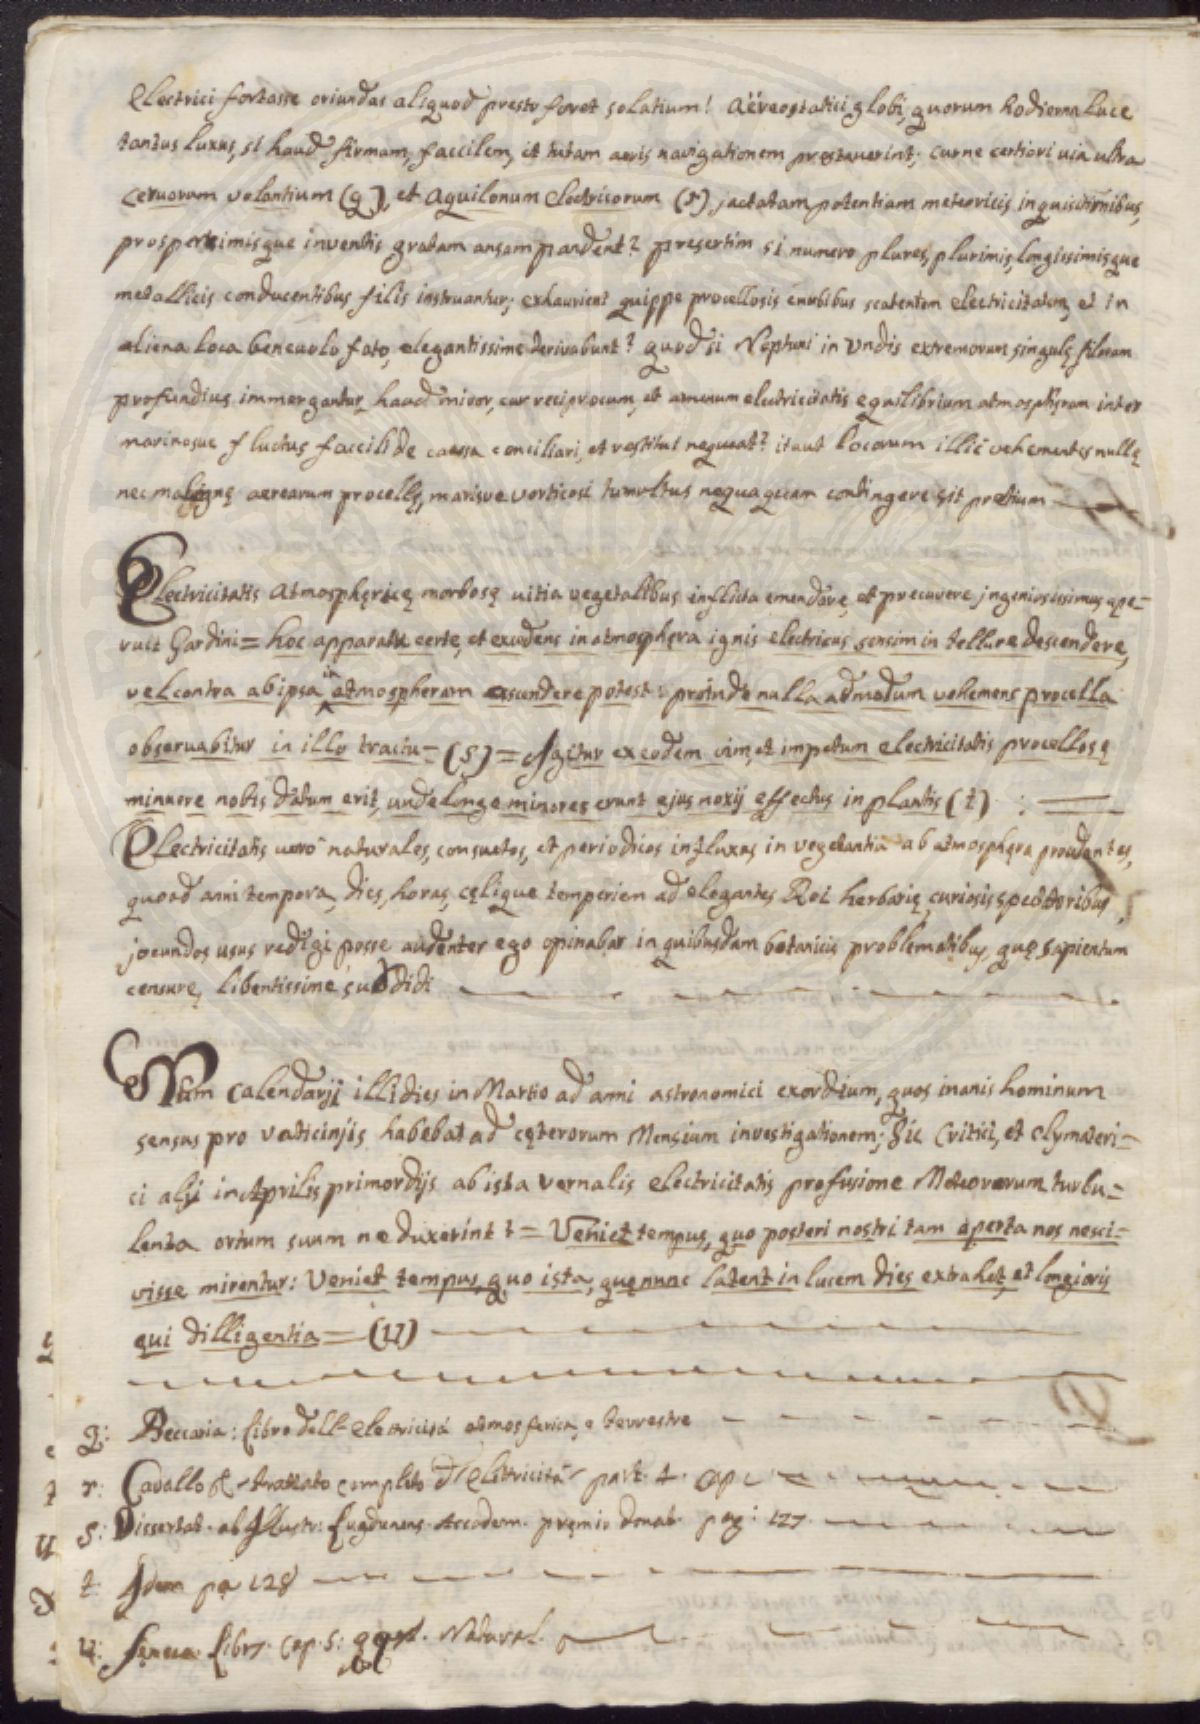 electrici fortasse oriundas aliquod presto foret solatium! Aëreostatici globi, quorum hodierna luce
tantus luxus, si haud firmam, faccilem, et tutam aeris navigationem prestaverint; curne certiori via ultra
Cervorum volantium (q), et Aquilonum electricorum (r), jactatam potentiam meteoricis inquisitionibus,
prosperrimisque inventis gratam ansam pandent? presertim si numero plures, plurimis, longissimisque
metallicis conducentibus filis instruantur; exhaurient quippe procellosis enubibus scatentem electricitatem, et in
aliena loca benevolo fato, elegantissime derivabunt? quod si Neptuni in Undis extremorum singulę filorum
profundius immergantur, haud miror, cur reciprocum, et amenum electricitatis equilibrium atmosphęram inter
marinosue fluctus faccili de caussa conciliari, et restitui nequeat? itaut locorum illic vehementes nullę
nec malignę aerearum procellę, marisve vorticosi tumultus nequaquam contingere sit pretium
Electricitatis Atmosphęricę morbosę uitia vegetalibus inflicta emendare, et precavere jngeniosissimus ape-
ruit Gardini = hoc apparatu certe, et excedens in atmosphęra ignis electricus sensim in tellure descendere,
vel contra ab ipsa in atmospheram ascendere potest: proinde nulla admodum vehemens procella
observabitur in illo tractu = (s) = Igitur ex eodem vim, et impetum electricitatis procellosę
minuere nobis datum erit, unde longe minores erunt ejus noxij effectus in plantis (t) :
Electricitatis uerò naturales, consuetos, et periodicos influxus in vegetantia ab atmosphęra proudentes,
quoad anni tempora, dies, horas, cęlique temperiem ad elegantes Rei herbarię, curiosis spectatoribus,
jocundos usus redigi posse audenter ego opinabar in quibusdam botanicis problematibus, quę sapientum
censurę, libentissime subdidi
Num Calendarij illi dies in Martio ad anni astronomici exordium, quos inanis hominum
sensus pro vaticinijs habebat ad cęterorum Mensium investigationem; Sic Critici, et Clymateri-
ci alij in Aprilis primordijs ab ista vernalis electricitatis profusione Meteororum turbu=
lenta ortum suum ne duxerint? = Veniet tempus, quo posteri nostri tam aperta nos nesci-
visse mirentur: Veniet tempus, quo ista, quę nunc latent in lucem dies extrahet, et longioris
qui dilligentia = (u)
q: Beccaria: libro dell' elettricità atmosferica, e terrestre
r: Cavallo trattato completo d'elettricità part. 4. cap
s: Dissertat. ab Illustr: Lugdunens. Accadem. pręmio donat. pag: 127
t: Idem pa 128
u: Seneca libr 7 cap. 5: qęst. Natural.